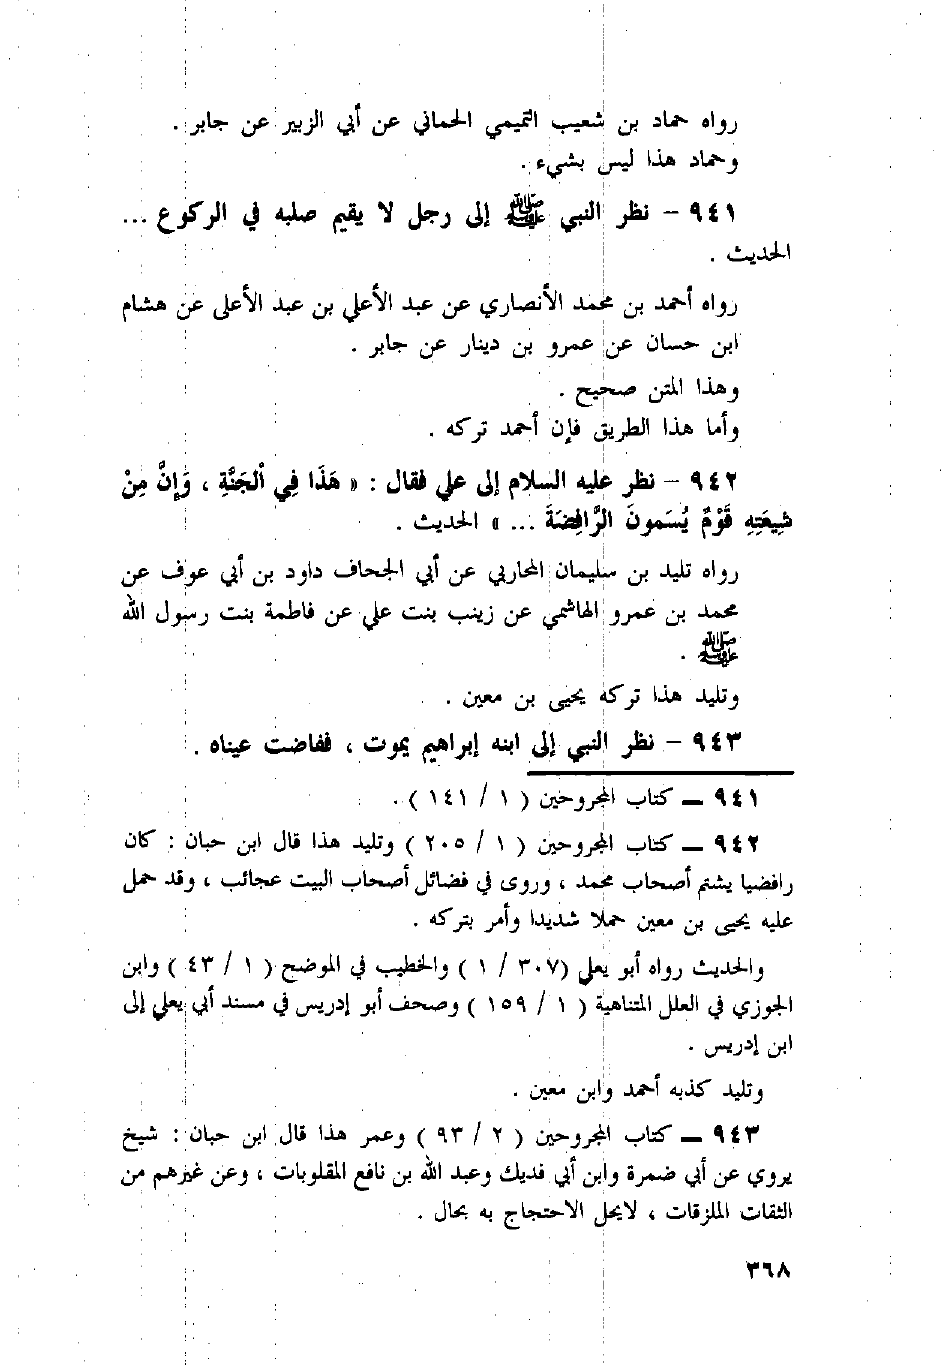 رواه حماد بن شعيب التميمي الحماني عن أبي الزبير عن جابر .
وحماد هذا ليس بشيء .
٩٤١ – نظر النبي ﷺ إلى رجل لا يقيم صلبه في الركوع ...
الحديث .
رواه أحمد بن محمد الأنصاري عن عبد الأعلي بن عبد الأعلى عن هشام
ابن حسان عن عمرو بن دينار عن جابر .
وهذا المتن صحيح .
وأما هذا الطريق فإن أحمد تركه .
٩٤٢ – نظر عليه السلام إلى علي فقال : « هَذَا فِي ألجَنَّةِ ، وَإِنَّ مِنْ
شِيعَتِهِ قَوْمٌ يُسَمونَ الرَّافِضَةَ ... » الحديث .
رواه تليد بن سليمان المحاربي عن أبي الجحاف داود بن أبي عوف عن
محمد بن عمرو الهاشمي عن زينب بنت علي عن فاطمة بنت رسول الله
ﷺ .
وتليد هذا تركه يحيى بن معين .
٩٤٣ – نظر النبي إلى ابنه إبراهيم يموت ، ففاضت عيناه .
٩٤١ – كتاب المجروحين ( ١ / ١٤١ ) .
٩٤٢ – كتاب المجروحين ( ١ / ٢٠٥ ) وتليد هذا قال ابن حبان : كان
رافضيا يشتم أصحاب محمد ، وروى في فضائل أصحاب البيت عجائب ، وقد حمل
عليه يحيى بن معين حملا شديدا وأمر بتركه .
والحديث رواه أبو يعلي (٣٠٧ / ١ ) والخطيب في الموضح ( ١ / ٤٣ ) وابن
الجوزي في العلل المتناهية ( ١ / ١٥٩ ) وصحف أبو إدريس في مسند أبي يعلي إلى
ابن إدريس .
وتليد كذبه أحمد وابن معين .
٩٤٣ – كتاب المجروحين ( ٢ / ٩٣ ) وعمر هذا قال ابن حبان : شيخ
يروي عن أبي ضمرة وابن أبي فديك وعبد الله بن نافع المقلوبات ، وعن غيرهم من
الثقات الملزقات ، لايحل الاحتجاج به بحال .
٣٦٨